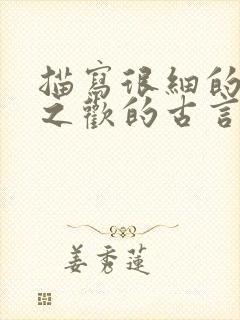 描寫很細的
之歡的古言
姜秀蓮